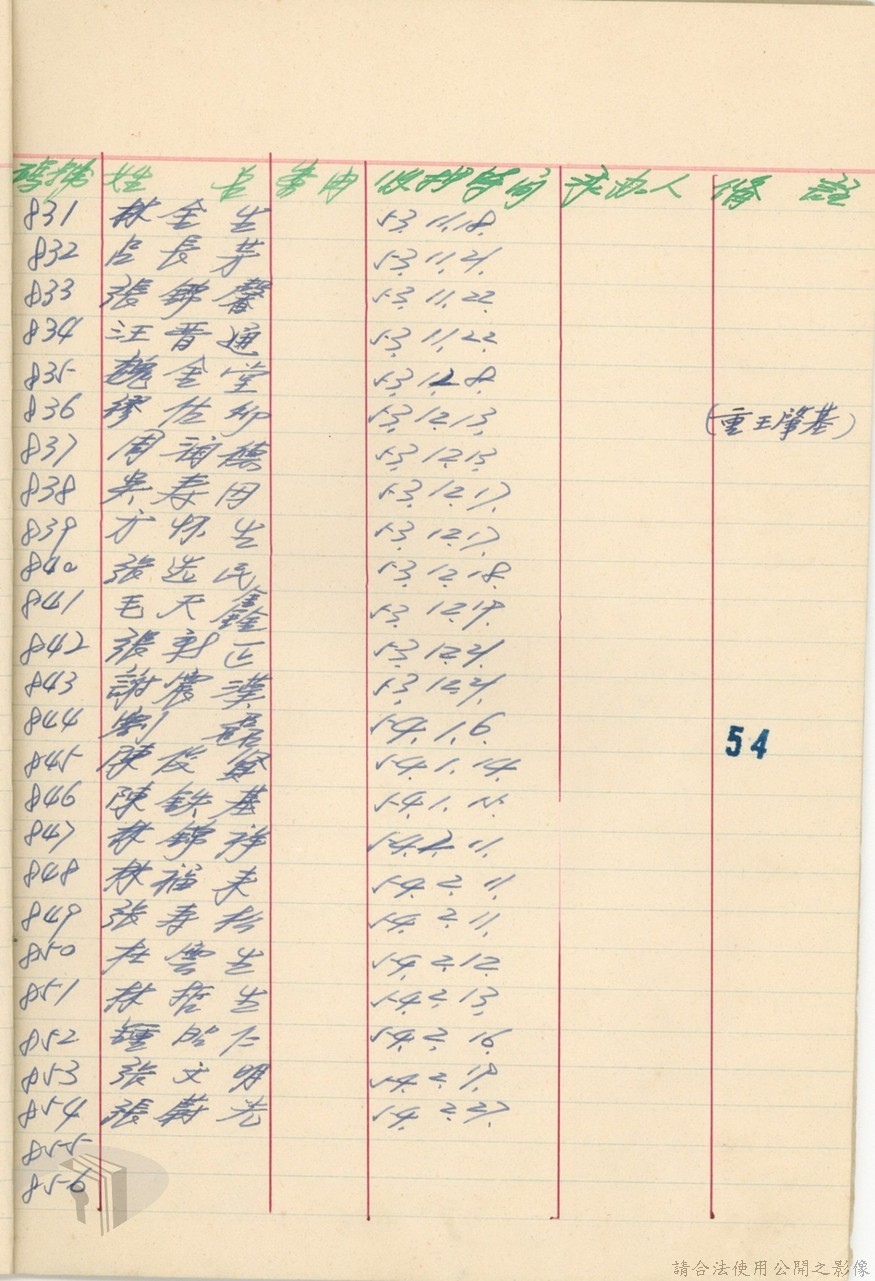 號碼 姓名 案由 收押時間 承办人 備註
831 林金生 53.11.18.
832 占長芳 53.11.21.
833 張錦馨 53.11.22.
834 汪晋通 53.11.22.
835 魏金堂 53.12.8.
836 缪佐卿 53.12.13. (重王肇基)
837 周 德 53.12.13.
838 吳春田 53.12.17.
839 方怀生 53.12.17.
840 張志民 53.12.18.
841 毛天鑫 53.12.19.
842 張 正 53.12.21.
843 謝農漢 53.12.21.
844 劉磊 54.1.6.
54
845 陳俊賢 54.1.14.
846 陳鉄基 54.1.15.
847 林錦祥 54.2.11.
848 林福来 54.2.11.
849 張寿松 54.2.11.
850 杜雲生 54.2.12.
851 林哲生 54.2.13.
852 鍾 仁 54.2.16.
853 張文明 54.2.19.
854 張蔚光 54.2.27.
855
856
請合法使用公開之影像